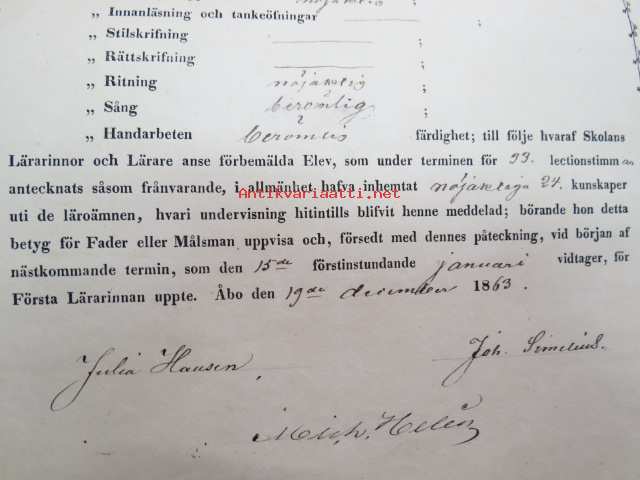 nöjaktig
„ Innanläsning och tankeöfningar ;
„ Stilskrifning ;
„ Rättskrifning ;
„ Ritning nöjaktig ;
„ Sång berömlig ;
„ Handarbeten berömlig färdighet; till följe hvaraf Skolans
Lärarinnor och Lärare anse förbemälda Elev, som under terminen för 93. lectionstimmar
antecknats såsom frånvarande, i allmänhet hafva inhemtat nöjaktiga 24. kunskaper
Antikvariaatti.net
uti de läroämnen, hvari undervisning hitintills blifvit henne meddelad; börande hon detta
betyg för Fader eller Målsman uppvisa och, försedt med dennes påteckning, vid början af
nästkommande termin, som den 15de förstinstundande januari vidtager, för
Första Lärarinnan uppte. Åbo den 19de december 1863.
Julia Hansen.
Joh. Simelius.
Mich. Helén